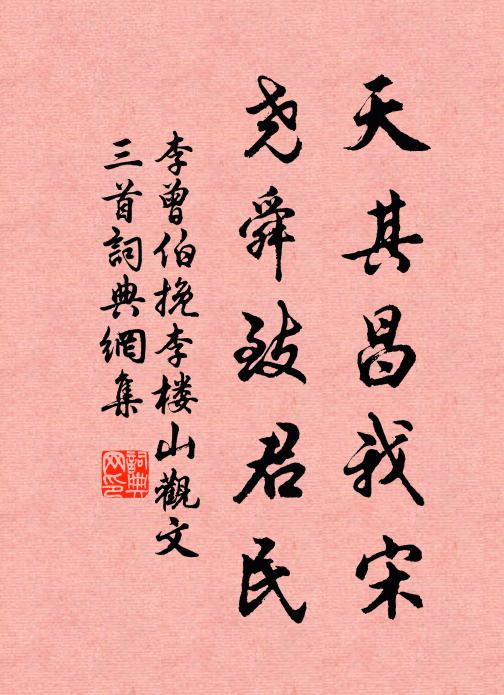 天其昌我宋
尧舜致君民
李曾伯挽李楼山觀文
三首詞典網集
詞典網印